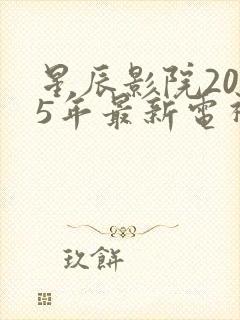 星辰影院20
5年最新電
玖餅